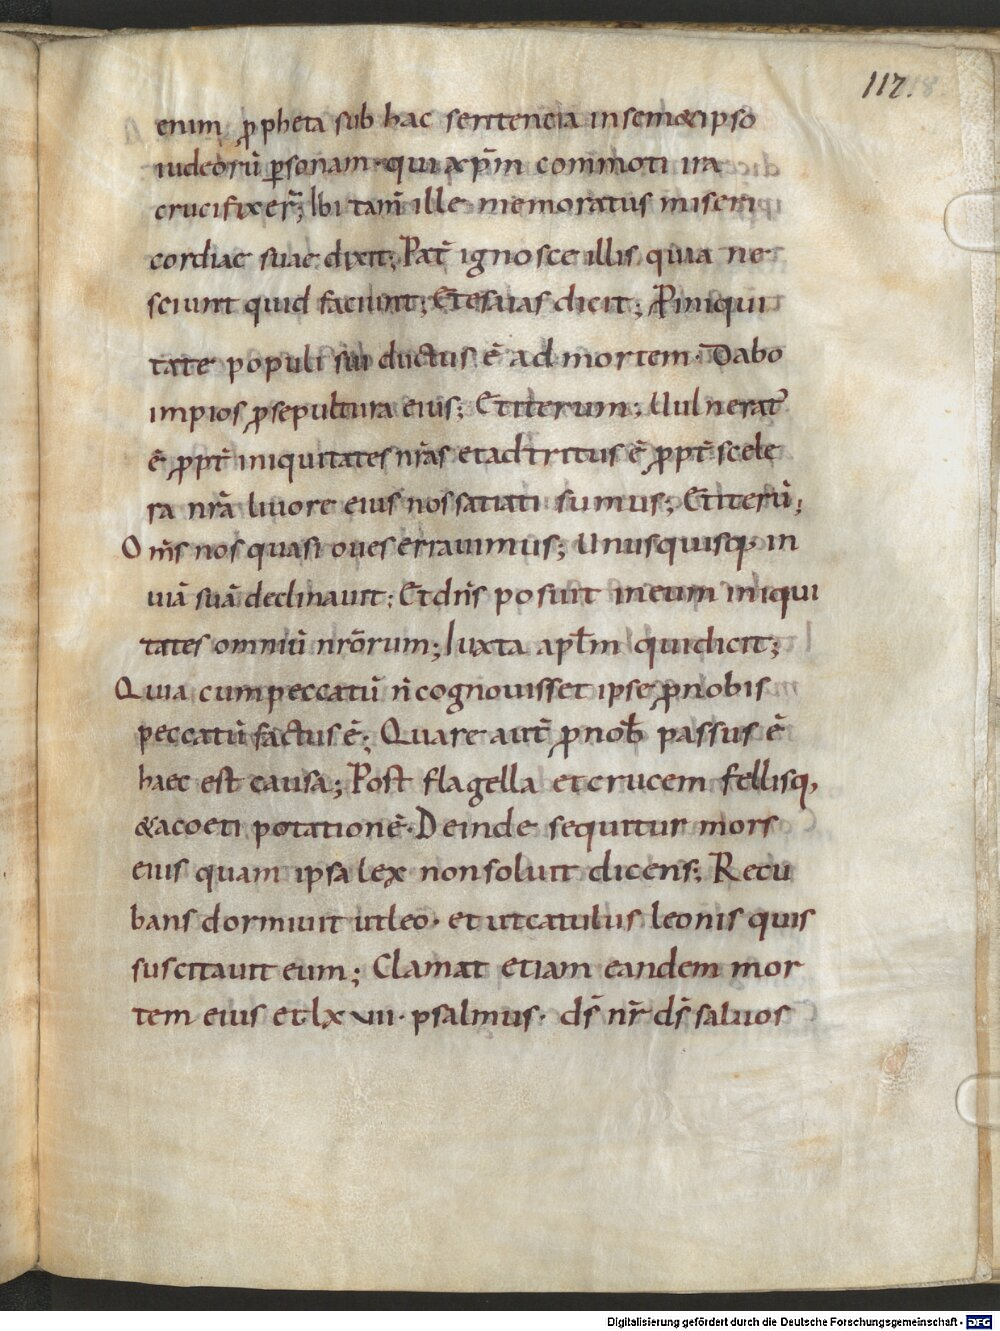 117.
enim p̱pheta sub hac sentencia insem&ipso
iudeorū ꝑsonam · qui xp̄m commoti ira
crucifixer̄; Ibi tam̄ ille memoratus miseri
cordiae suae dixit; Pat̄ ignosce illis quia ne
sciunt quid faciunt; Etesaias dicit; P̱iniqui
tate populi sui ductus ē ad mortem · Dabo
impios ꝓsepultura eius; Etiterum; Uulnerat'
ē ꝓpt̄ iniquitates nr̄as etadtritus ē ꝓpt̄ scele
ra nr̄a liuore eius nos satiati sumus; Etiterū;
Om̄s nos quasi oues errauimus; Unusquisq· in
uiā suā declinauit; Etdn̄s posuit ineum iniqui
tates omniū nr̄orum; Iuxta apl̄m quidicit;
Quia cumpeccatū n̄ cognouisset ipse ꝓnobis
peccatū factus ē; Quare aut̄ ꝓnob̄ passus ē
haec est causa; Post flagella etcrucem fellisq,
&acoeti potationē · Deinde sequitur mors
eius quam ipsa lex nonsoluit dicens; Recu
bans dormiuit utleo · et utcatulus leonis quis
suscitauit eum; Clamat etiam eandem mor
tem eius et lxvii · psalmus · ds̄ nr̄ ds̄ saluos
Digitalisierung gefördert durch die Deutsche Forschungsgemeinschaft - DFG